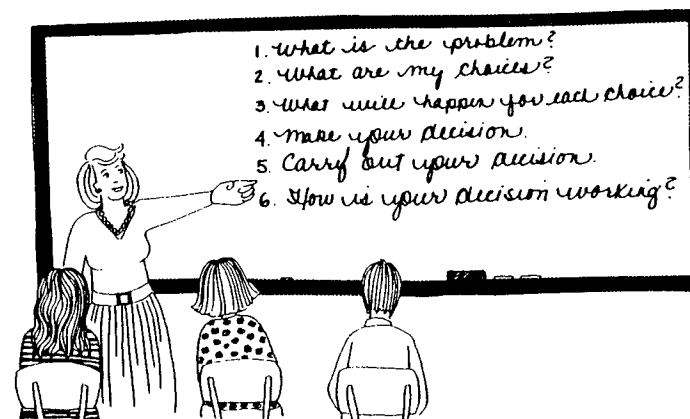 1. What is the problem?
2. What are my choices?
3. What will happen for each choice?
4. Make your decision.
5. Carry out your decision.
6. How is your decision working?